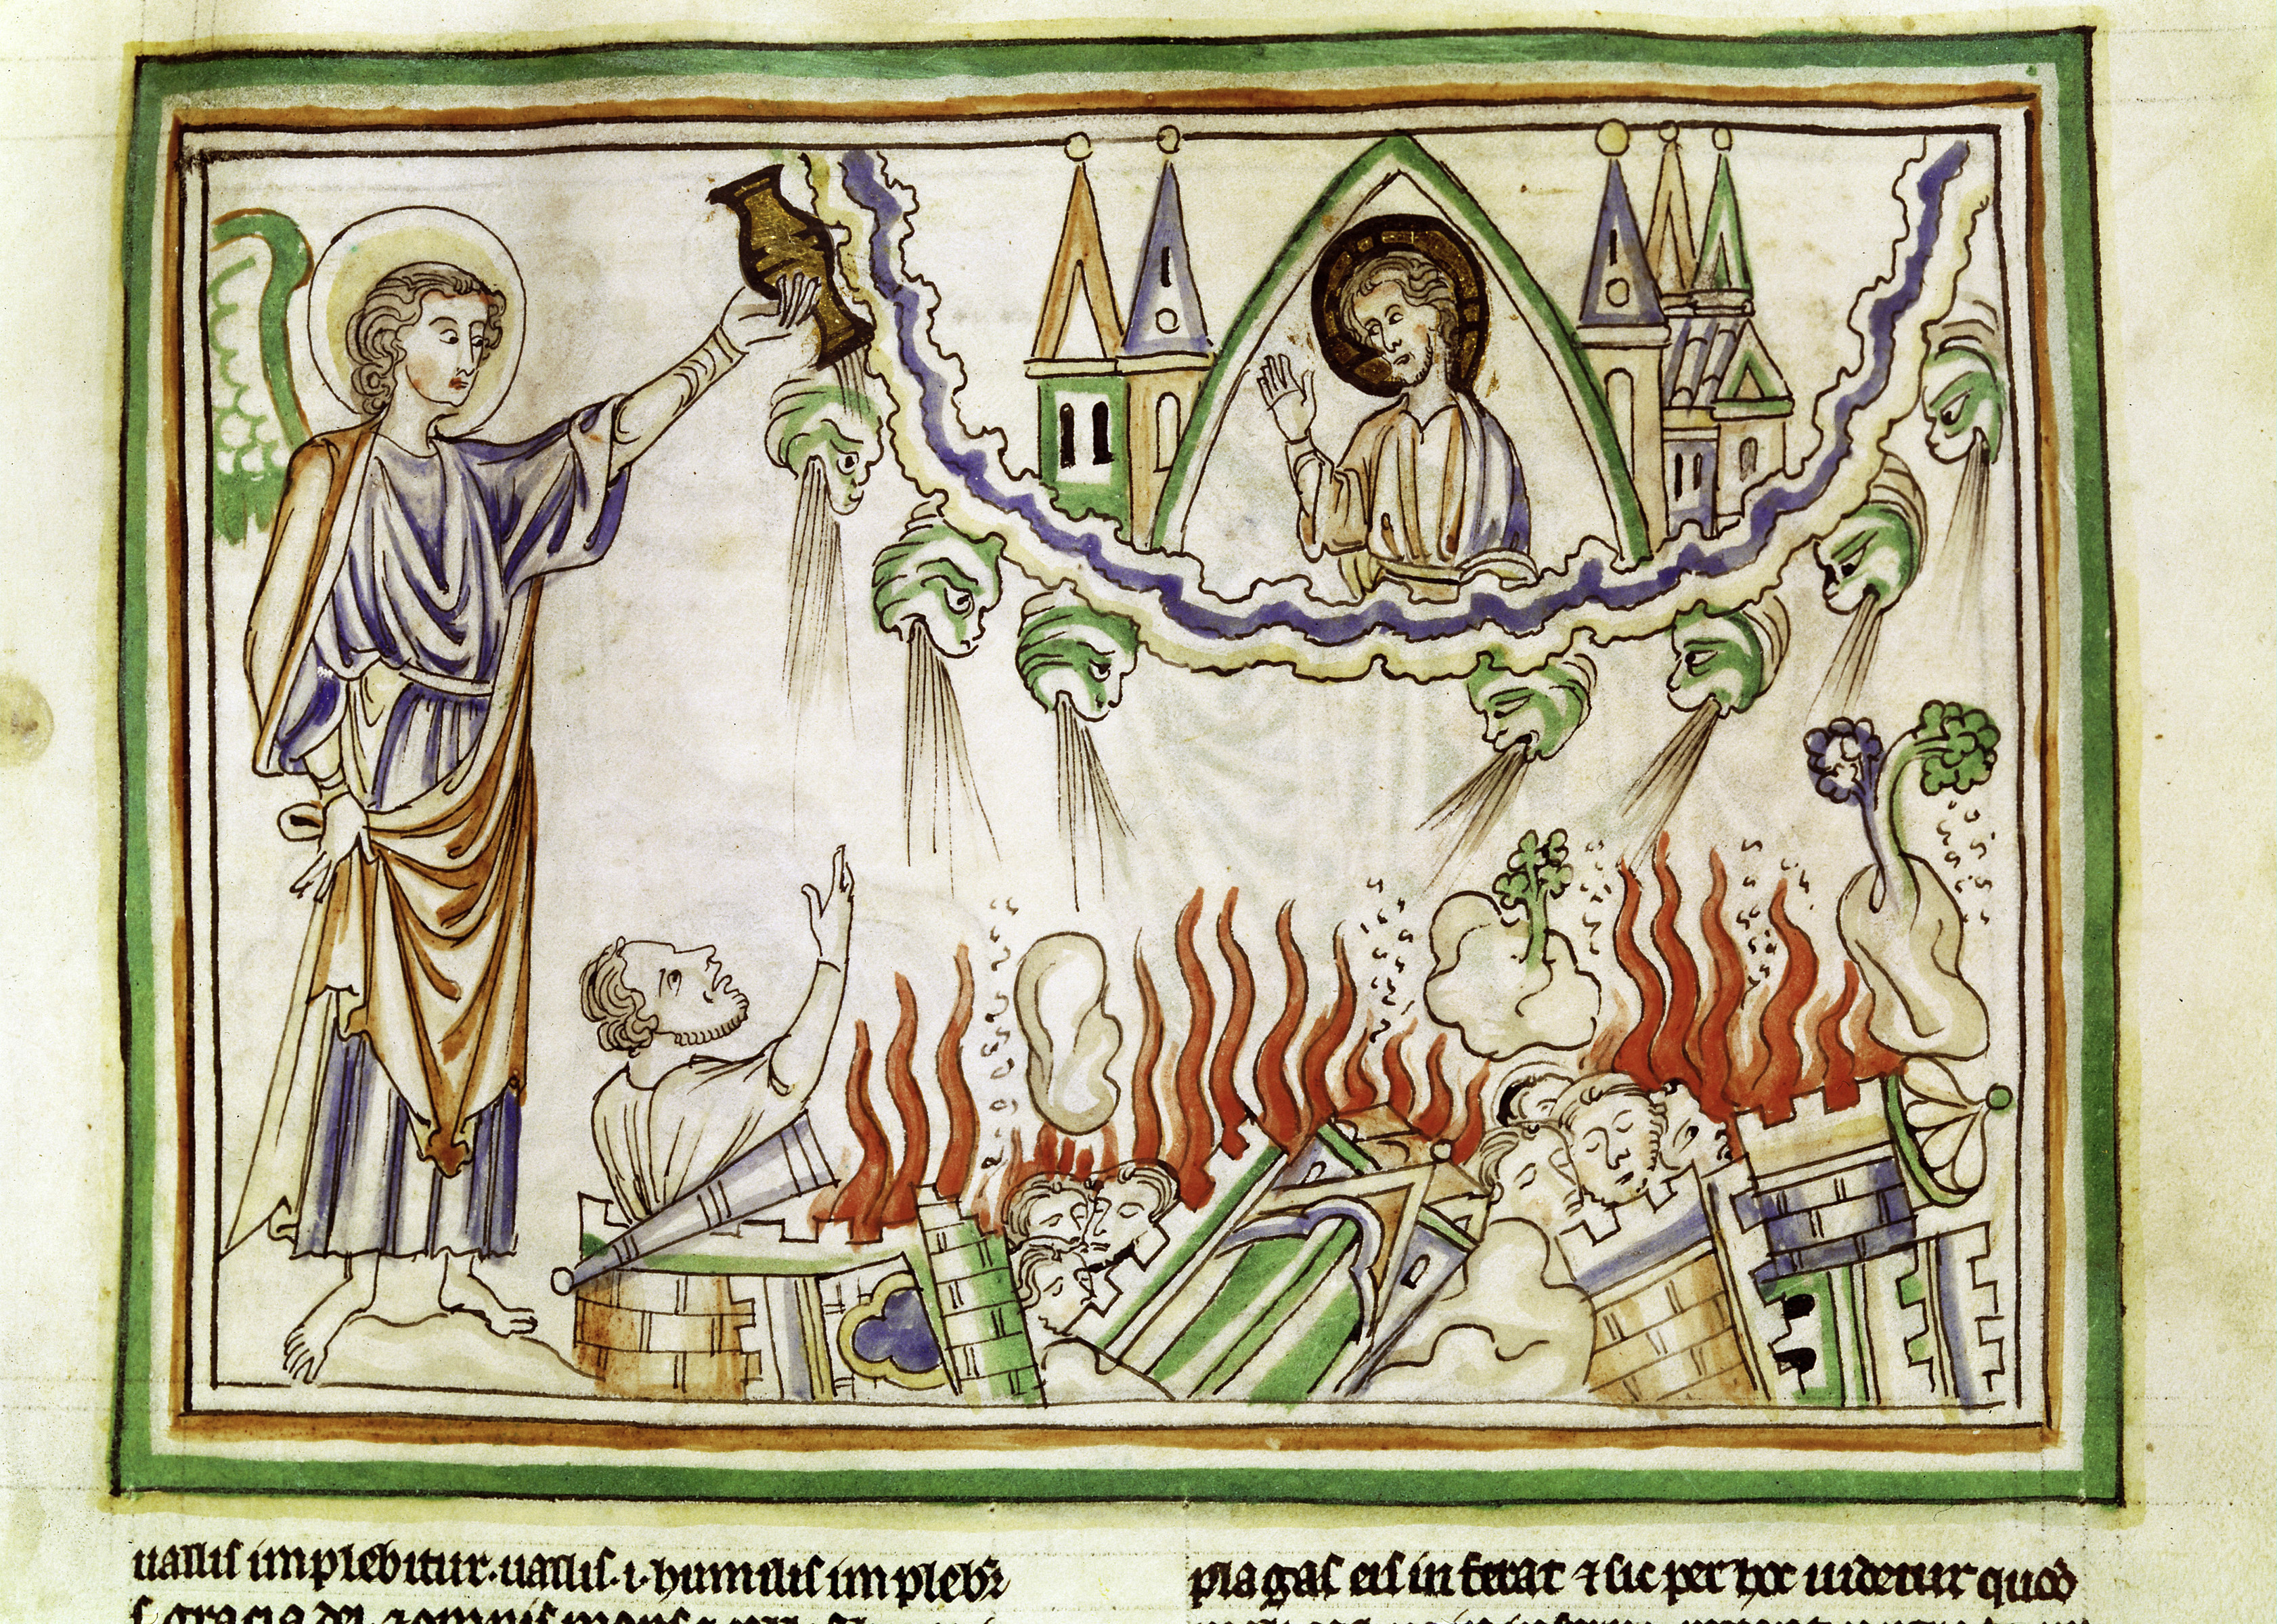 uallis implebitur. uallis .i. humilis implebr̄
s gracia dei
plagas eis inferat ⁊ sic per hoc uidetur quod